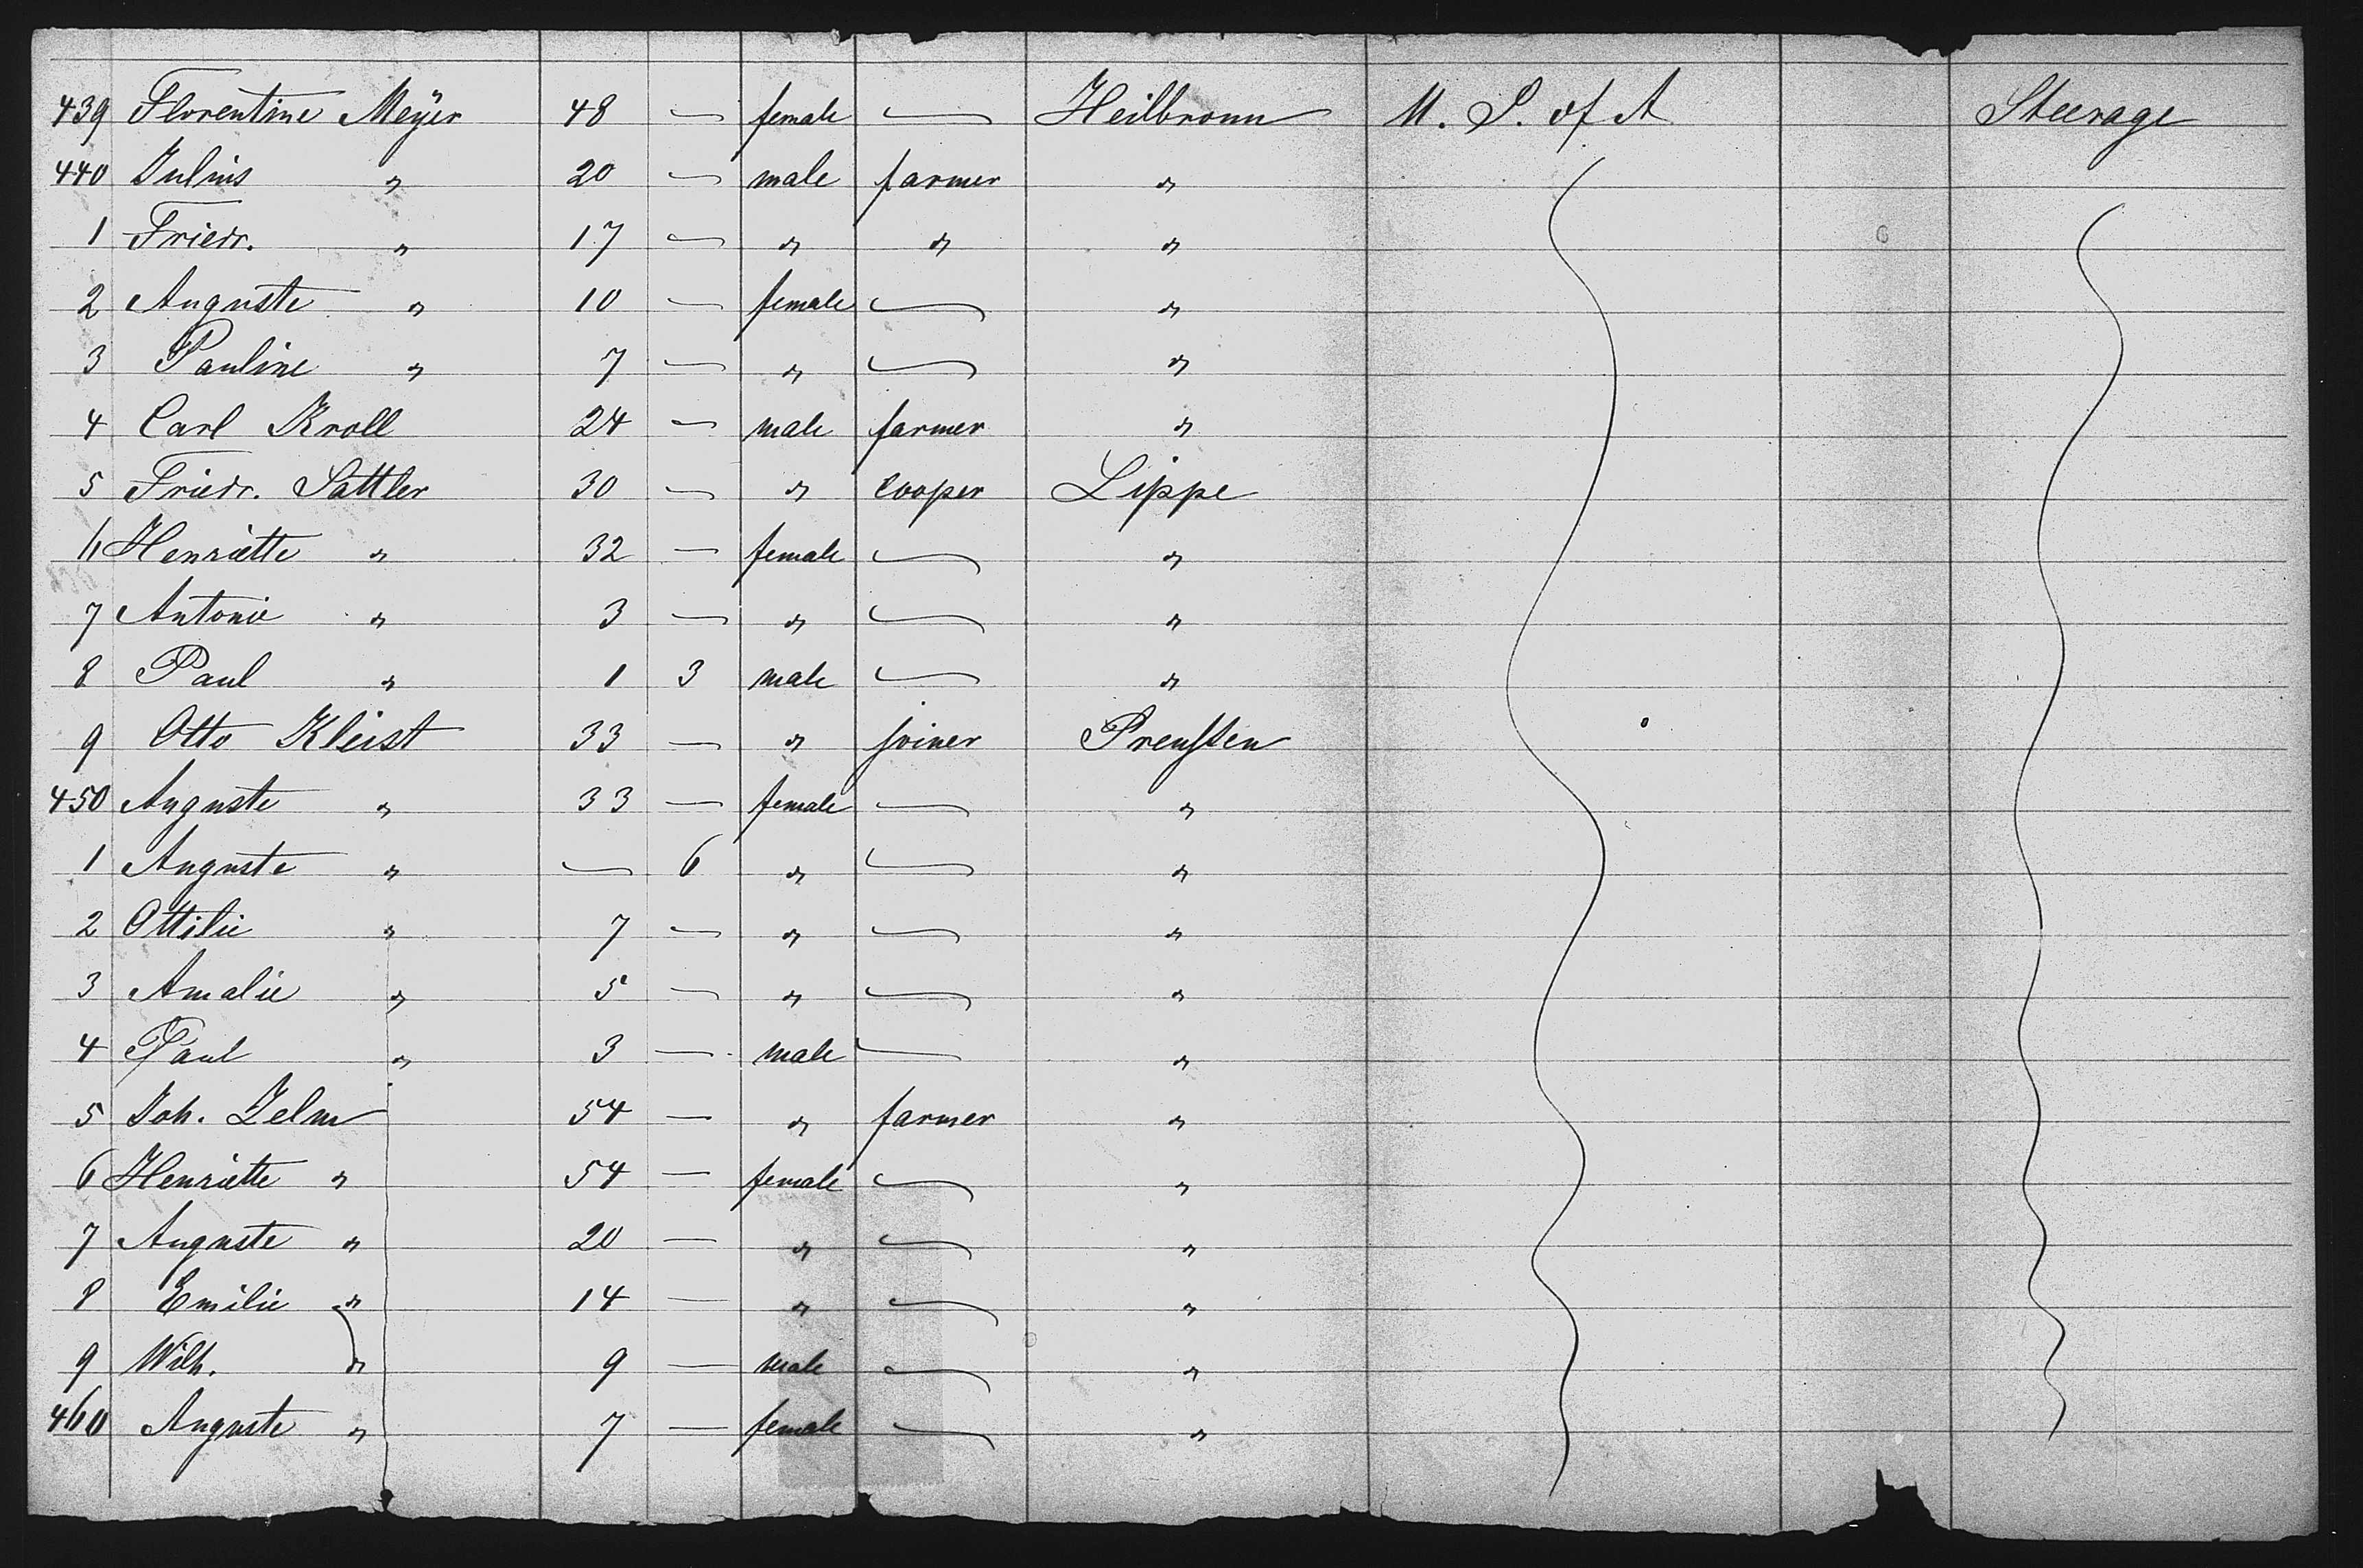 439 Florentine Meÿer 48 — female — Heilbronn U. S. of A Steerage
440 Julius " 20 — male farmer "
1 Friedr. " 17 — " " "
2 Auguste " 10 — female — "
3 Pauline " 7 — " — "
4 Carl Kroll 24 — male farmer "
5 Friedr. Sattler 30 — " cooper Lippe
6 Henriette " 32 — female — "
7 Antonie " 3 — " — "
8 Paul " 1 3 male — "
9 Otto Kleist 33 — " joiner Preußen
450 Auguste " 33 — female — "
1 Auguste " — 6 " — "
2 Ottilie " 7 — " — "
3 Amalie " 5 — " — "
4 Paul " 3 — male — "
5 Joh. Zelm 54 — " farmer "
6 Henriette " 54 — female — "
7 Auguste " 20 — " — "
8 Emilie " 14 — " — "
9 Wilh. " 9 — male — "
460 Auguste " 7 — female — "